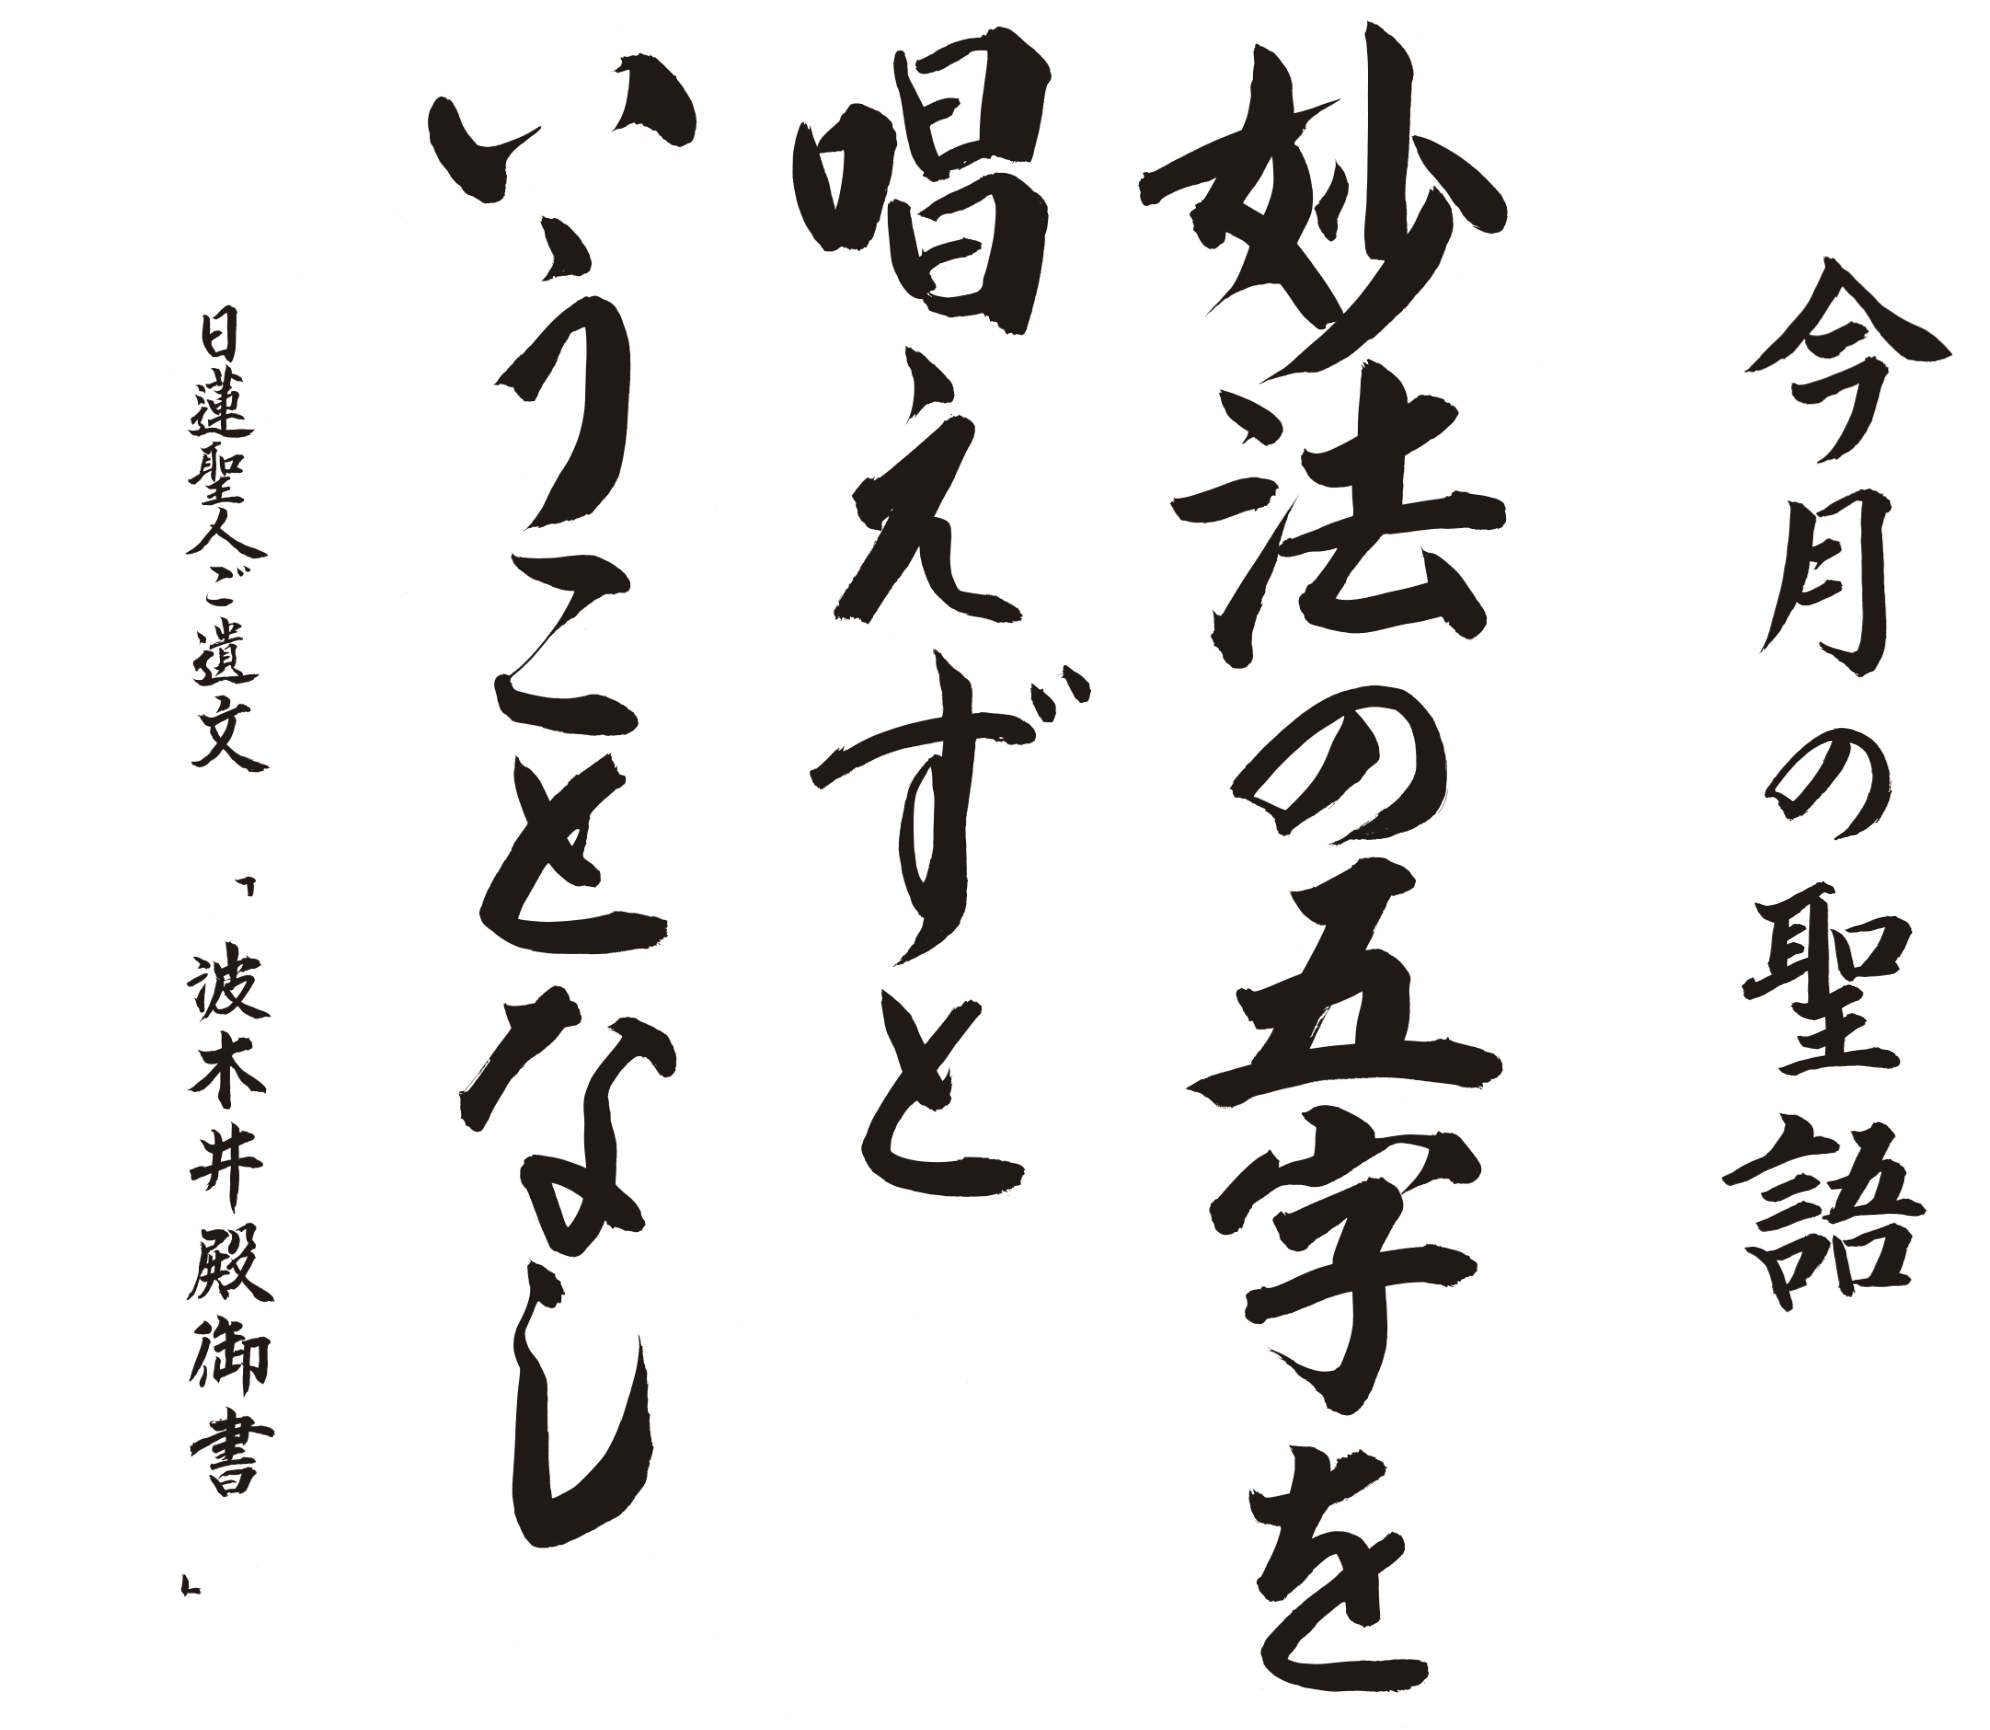 今月の聖語
妙法の五字を
唱えずと
いうことなし
日蓮聖人ご遺文 「波木井殿御書」